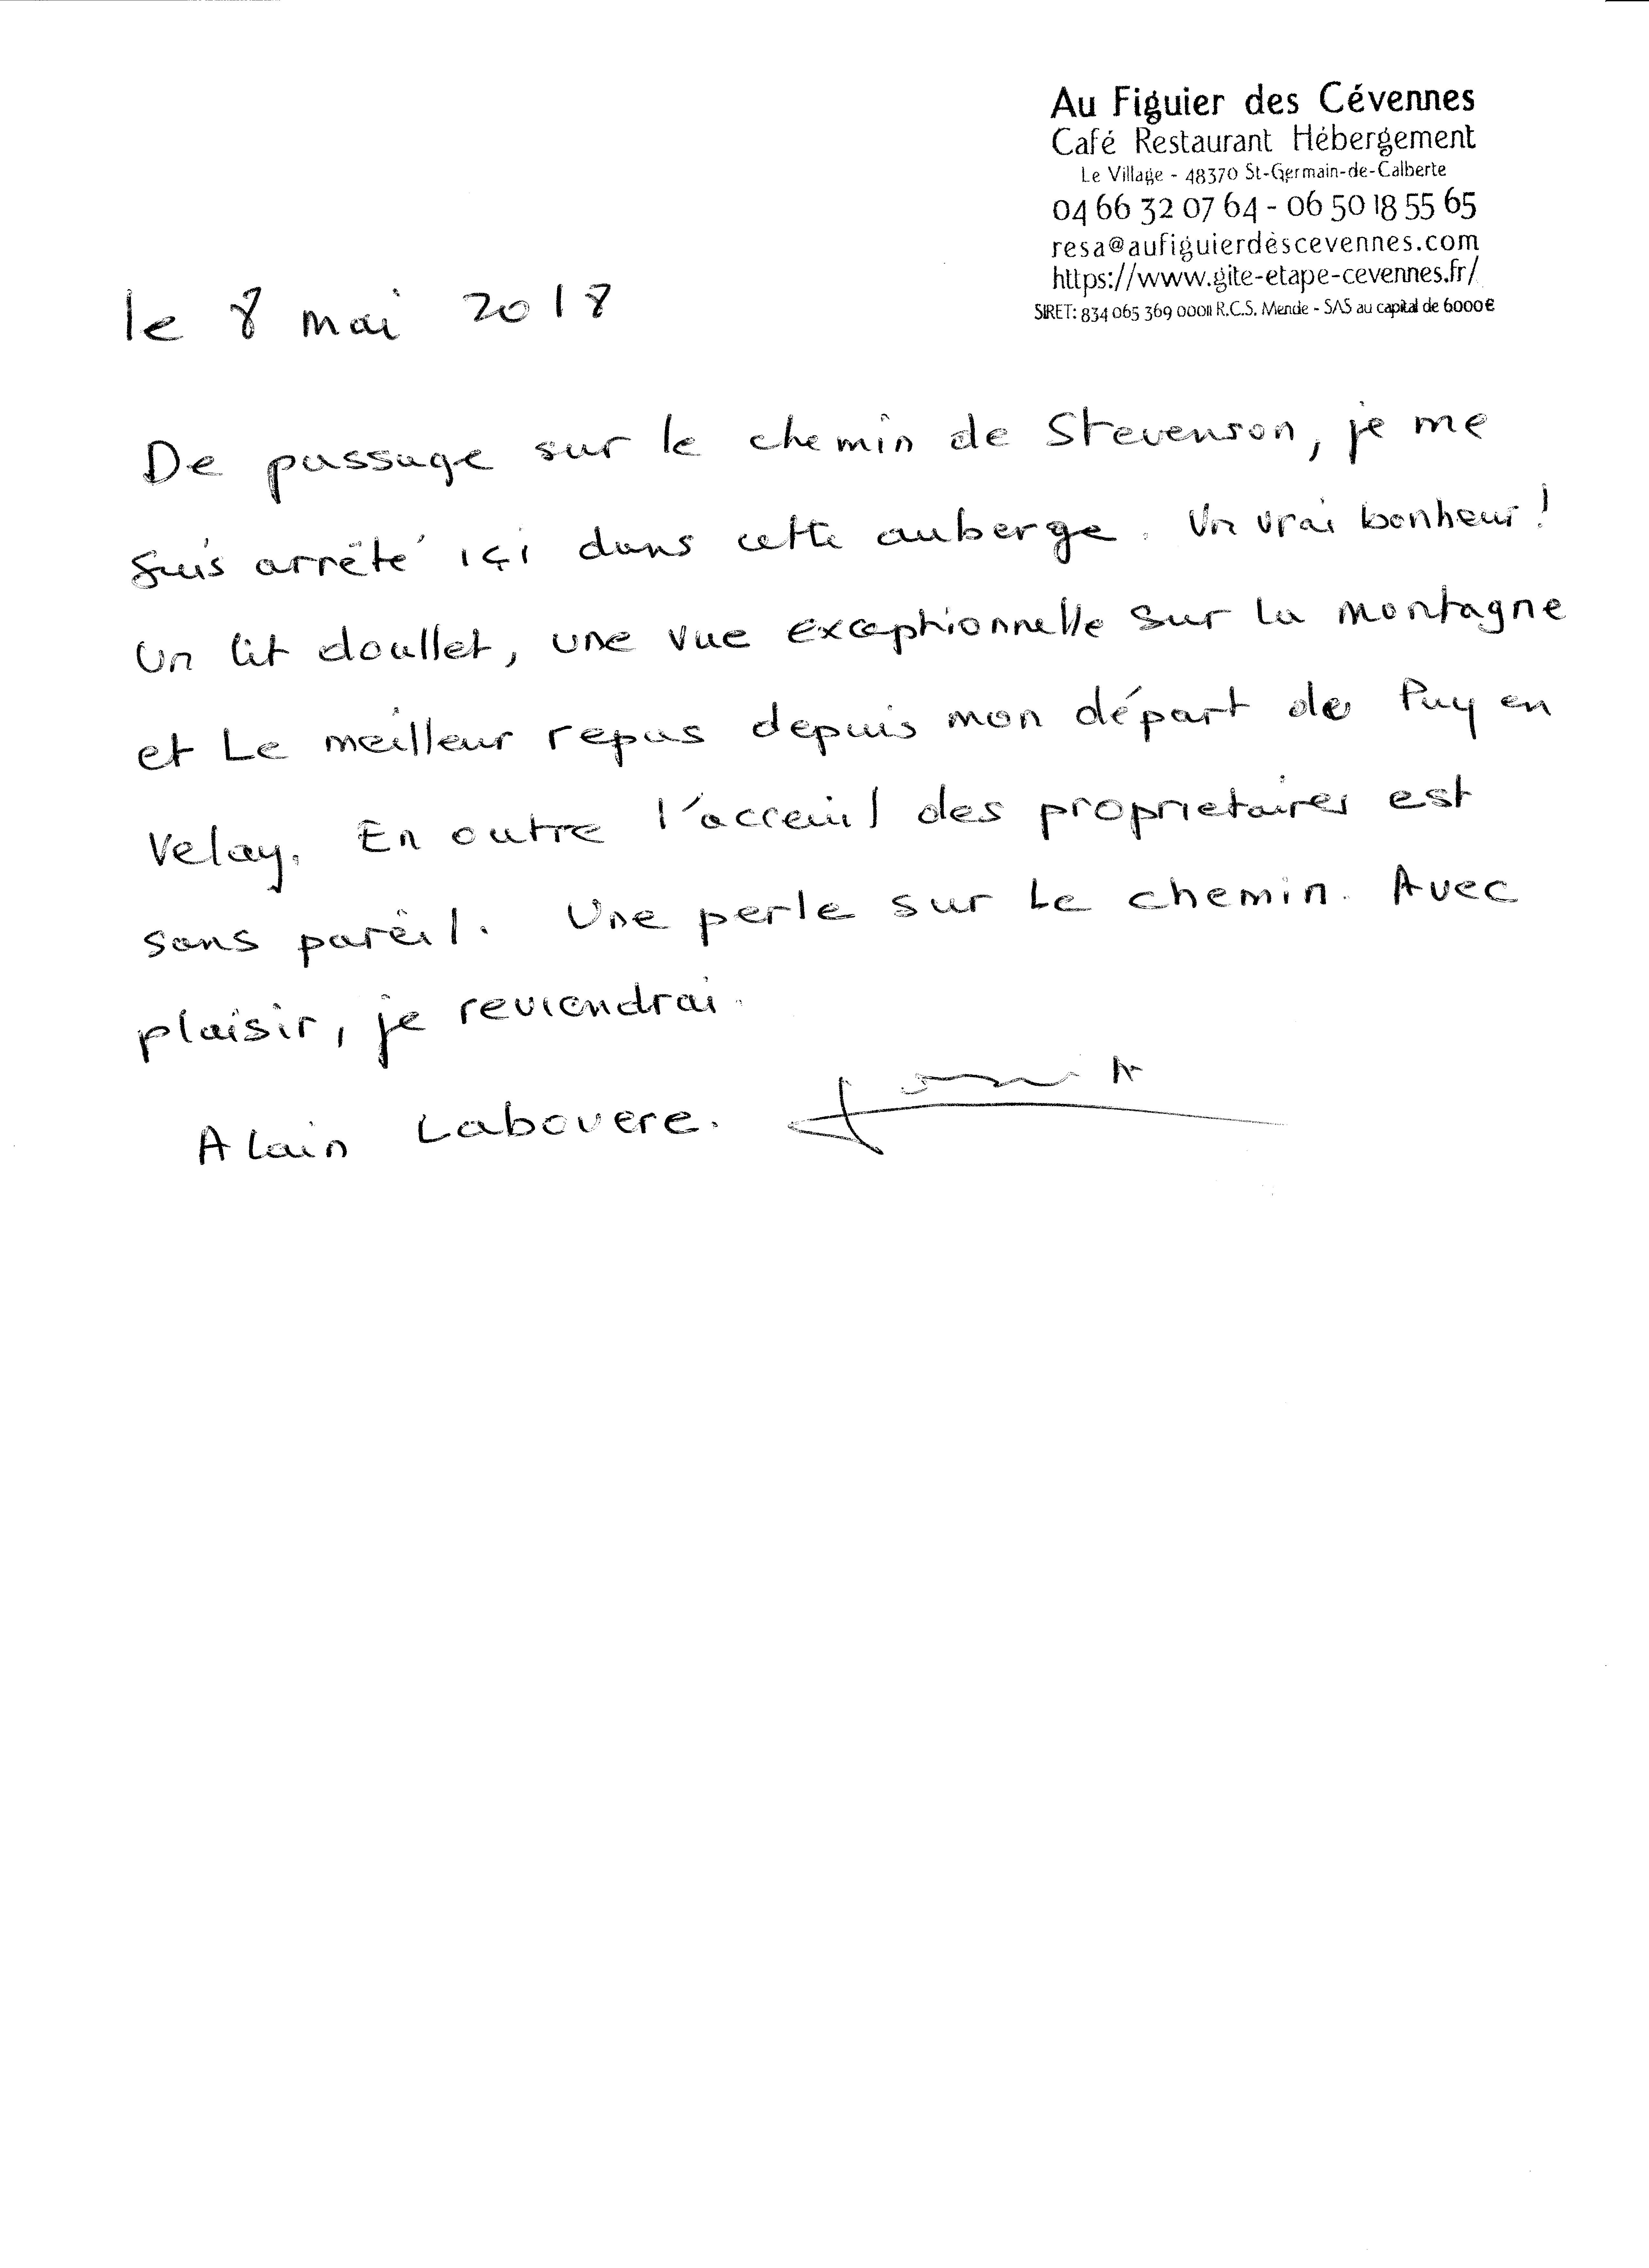 Au Figuier des Cévennes
Café Restaurant Hébergement
Le Village - 48370 St-Germain-de-Calberte
04 66 32 07 64 - 06 50 18 55 65
resa@aufiguierdescevennes.com
https://www.gite-etape-cevennes.fr/
SIRET: 834 065 369 00011 R.C.S. Mende - SAS au capital de 6000€
le 8 mai 2018
De passage sur le chemin de Stevenson, je me
suis arrêté içi dans cette auberge. Un vrai bonheur!
Un lit douillet, une vue exceptionnelle sur la montagne
et Le meilleur repas depuis mon départ de Puy en
Velay. En outre l'accreuil des proprietaires est
sans pareil. Une perle sur Le chemin. Avec
plaisir, je reviendrai.
Alain Labovere.